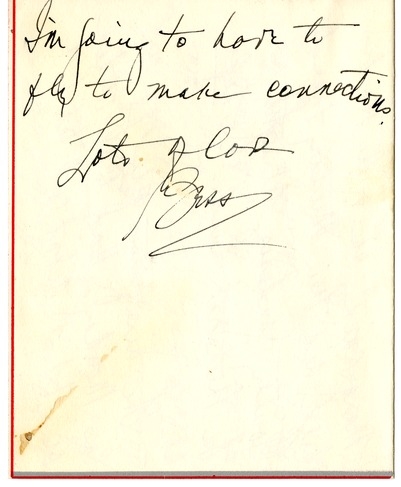 I'm going to have to
fly to make connections.
Lots of love
Bess